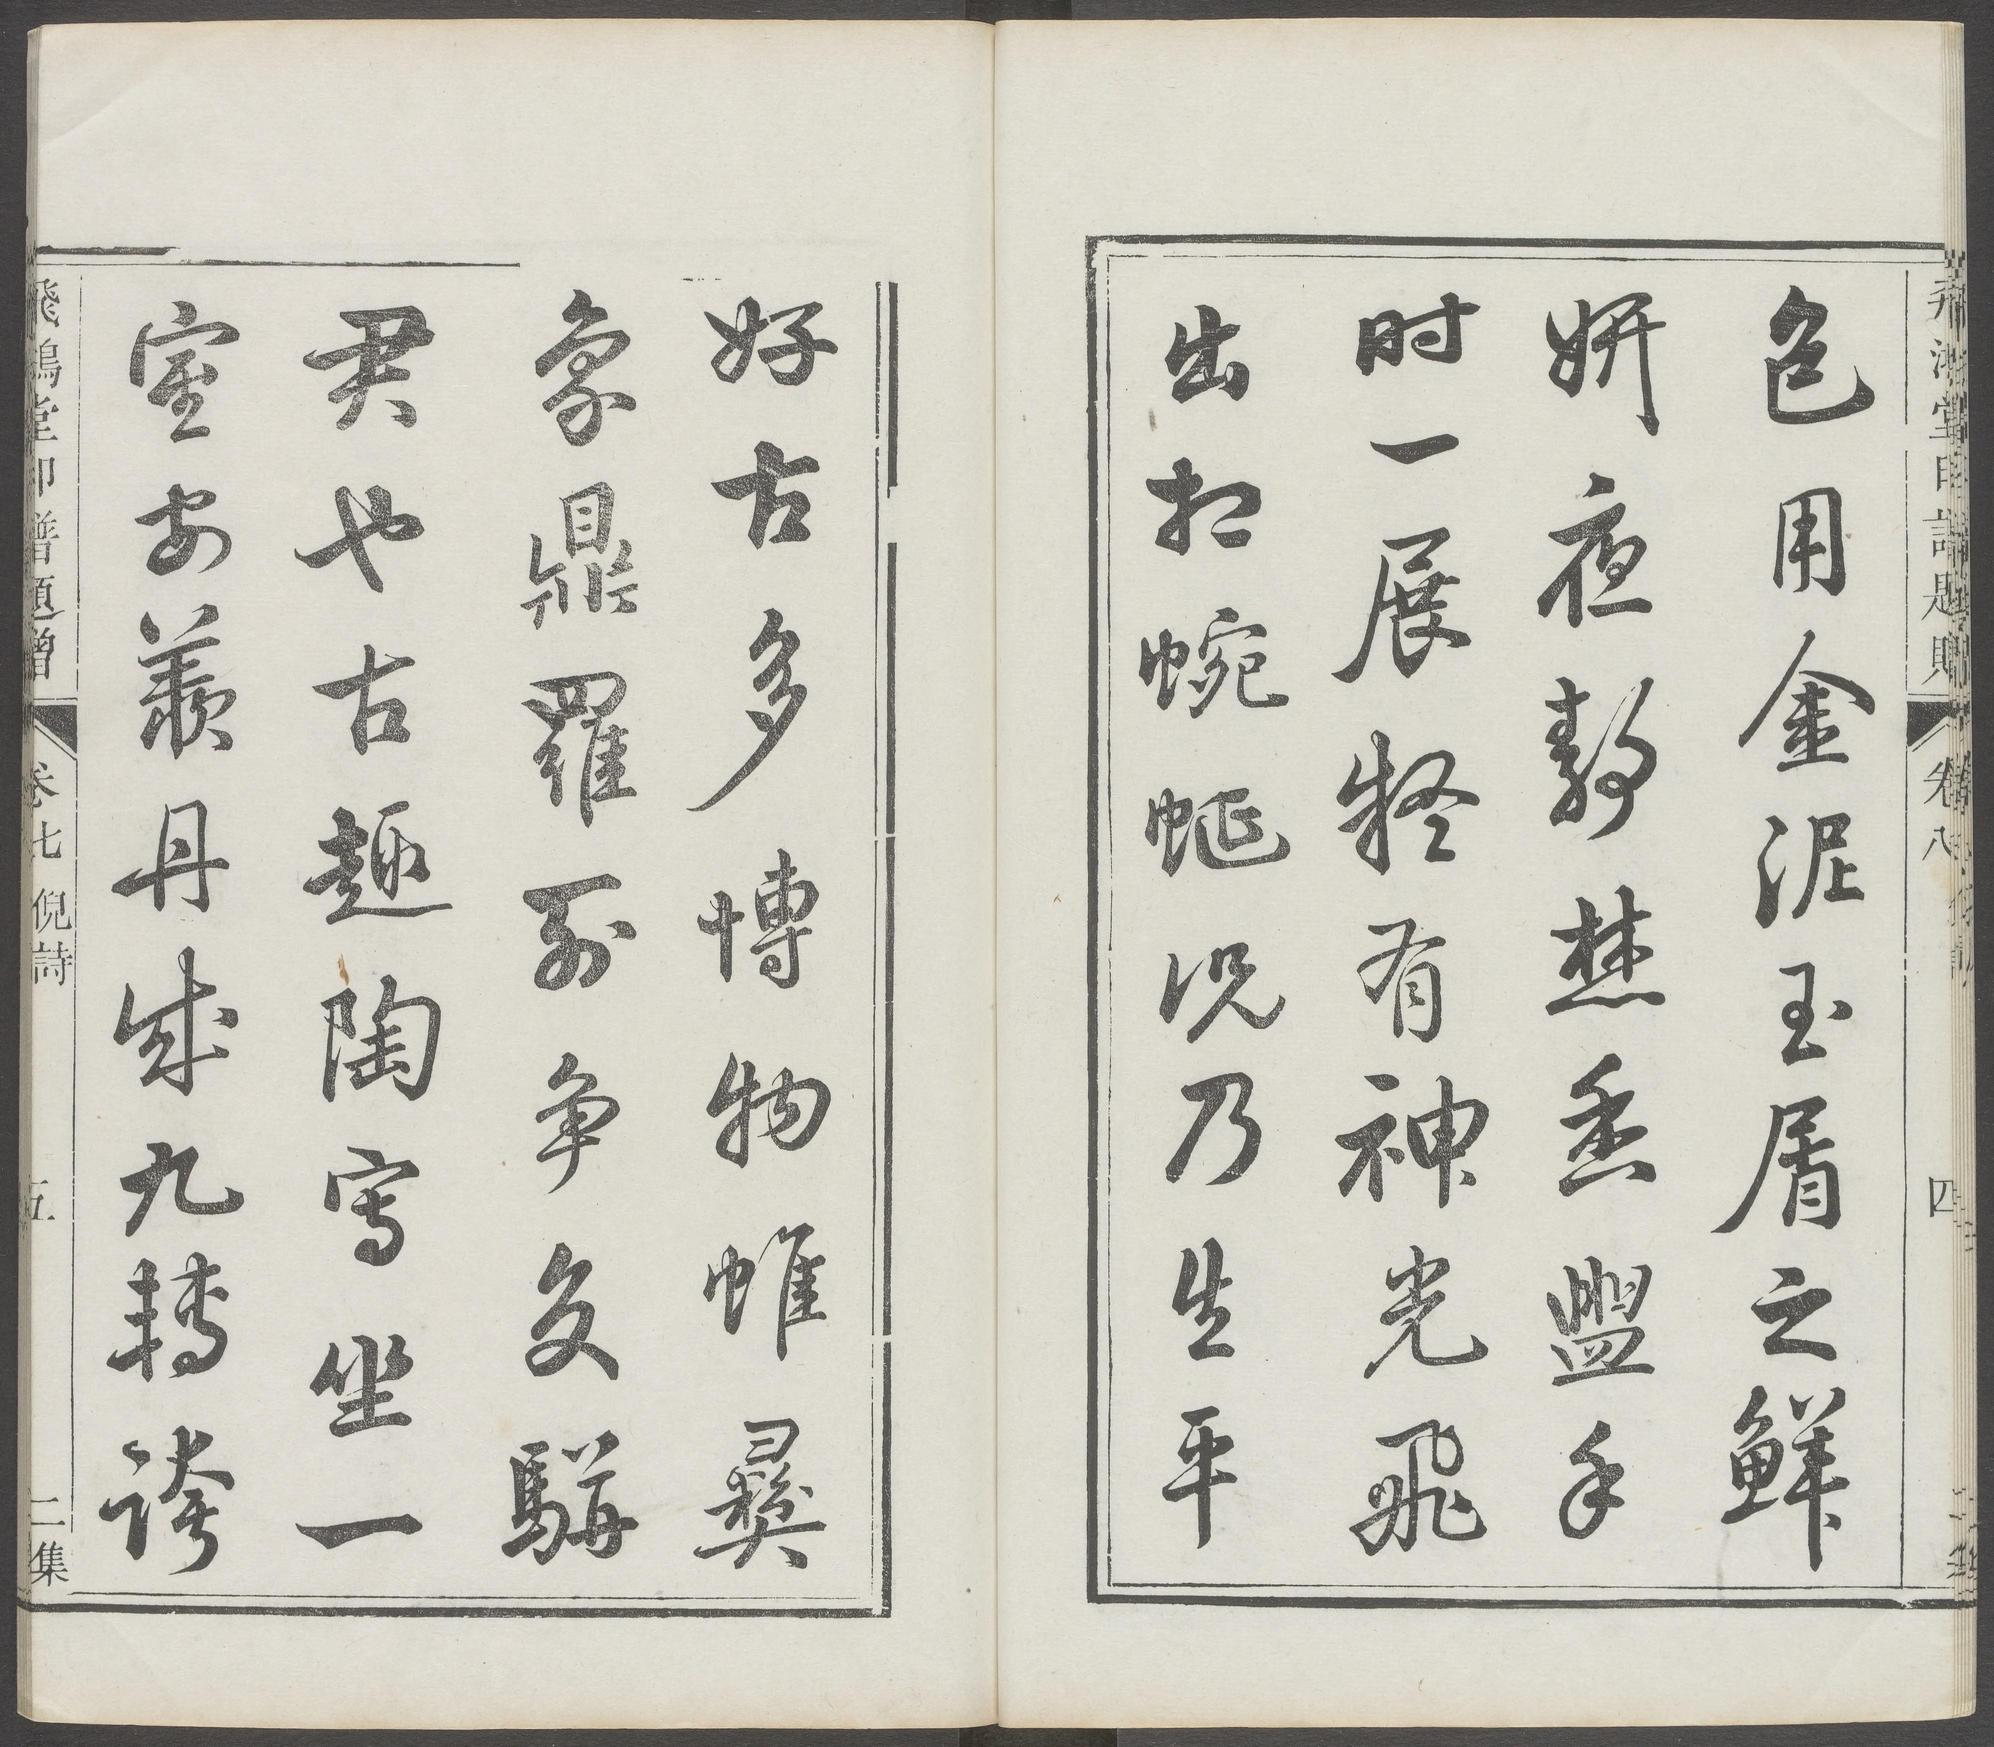 飛鴻堂印譜題贈 卷八 四
色用金泥玉屑之鮮
妍夜靜焚香盥手
时一展疑有神光飛
出相蜿蜒况乃生平
好古多博物惟彝
象鼎羅列争交駢
君也古趣陶寫坐一
室安羨丹成九轉誇
飛鴻堂印譜題贈 卷七 倪詩 五 二集